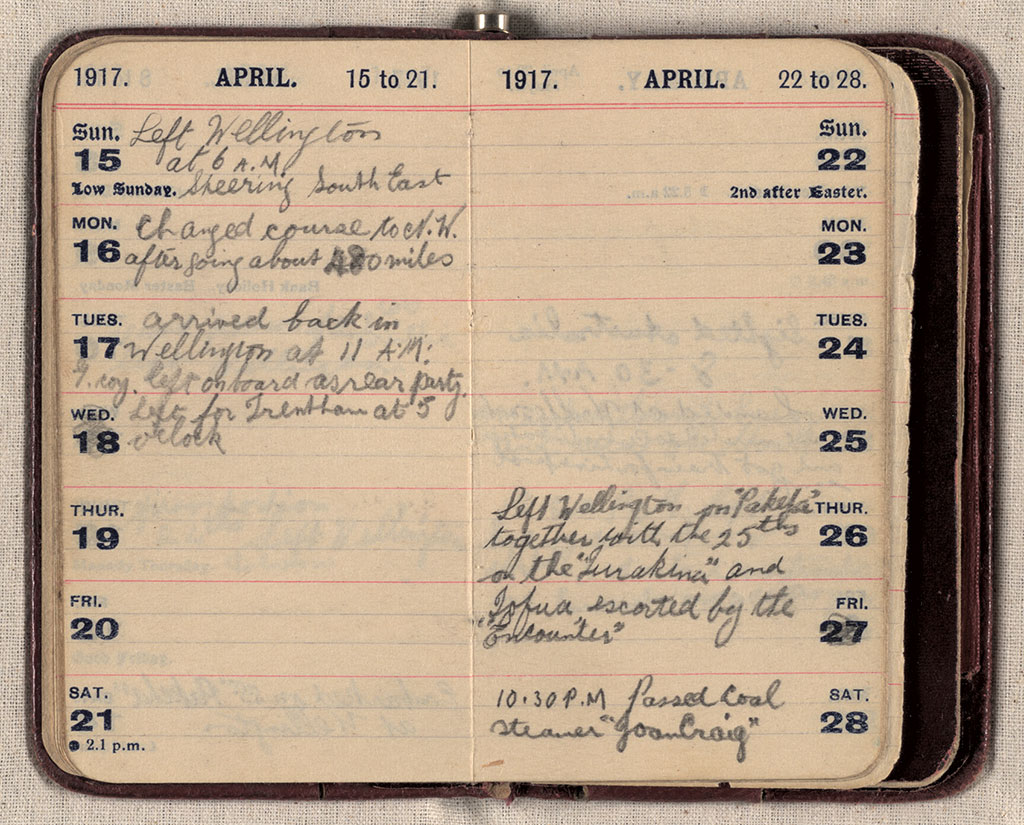 1917. APRIL. 15 to 21.
Sun. Left Wellington
15 at 6 A.M.
Low Sunday. Steering South East
MON. Changed course to N.W.
16 after going about 480 miles
TUES. arrived back in
17 Wellington at 11 A.M:
coy. left onboard as rear party.
WED. Left for Trentham at 5
18 o'clock
THUR.
19
FRI.
20
SAT.
21
2.1 p.m.
1917. APRIL. 22 to 28.
Sun.
22
2nd after Easter.
MON.
23
TUES.
24
WED.
25
Left Wellington on "Pakeha" THUR.
together with the 25ths 26
on the "Turakina" and
Tofua escorted by the FRI.
"Encounter" 27
10.30 P.M Passed Coal SAT.
steamer "Joan Craig" 28